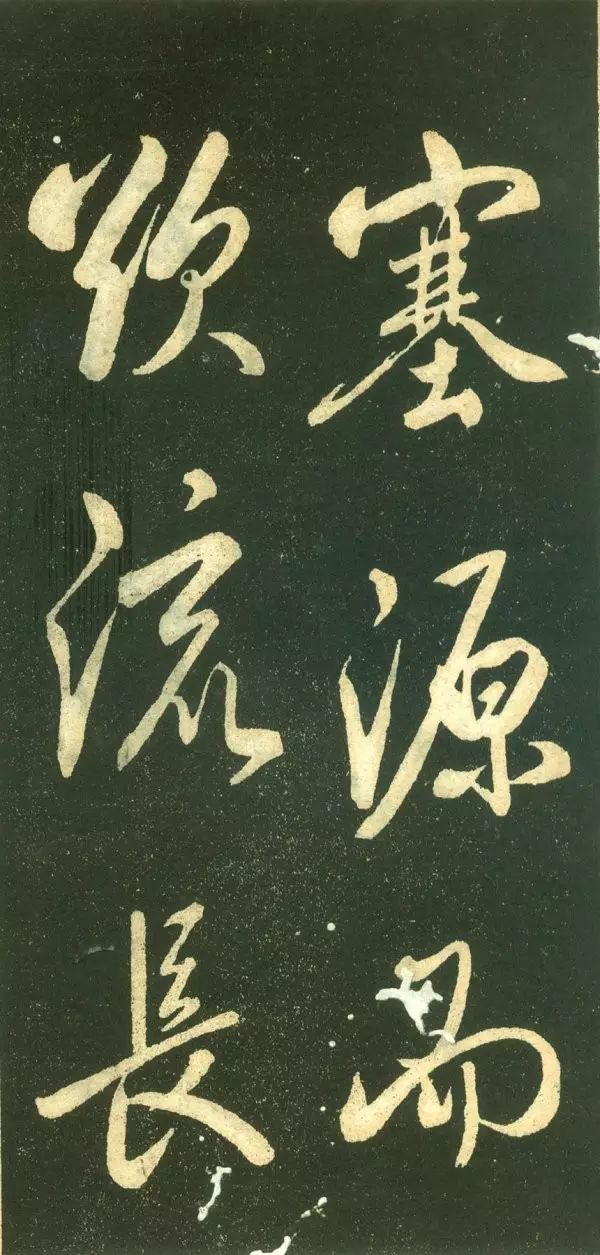 塞源易
流長